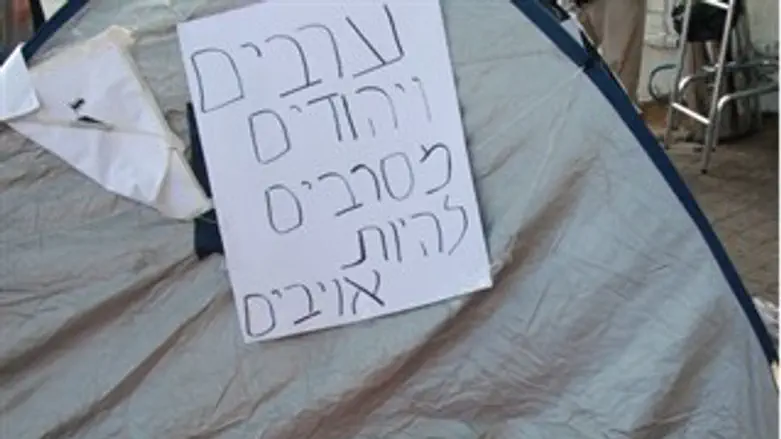 ערבים
ויהודים
מסרבים
להיות
אויבים